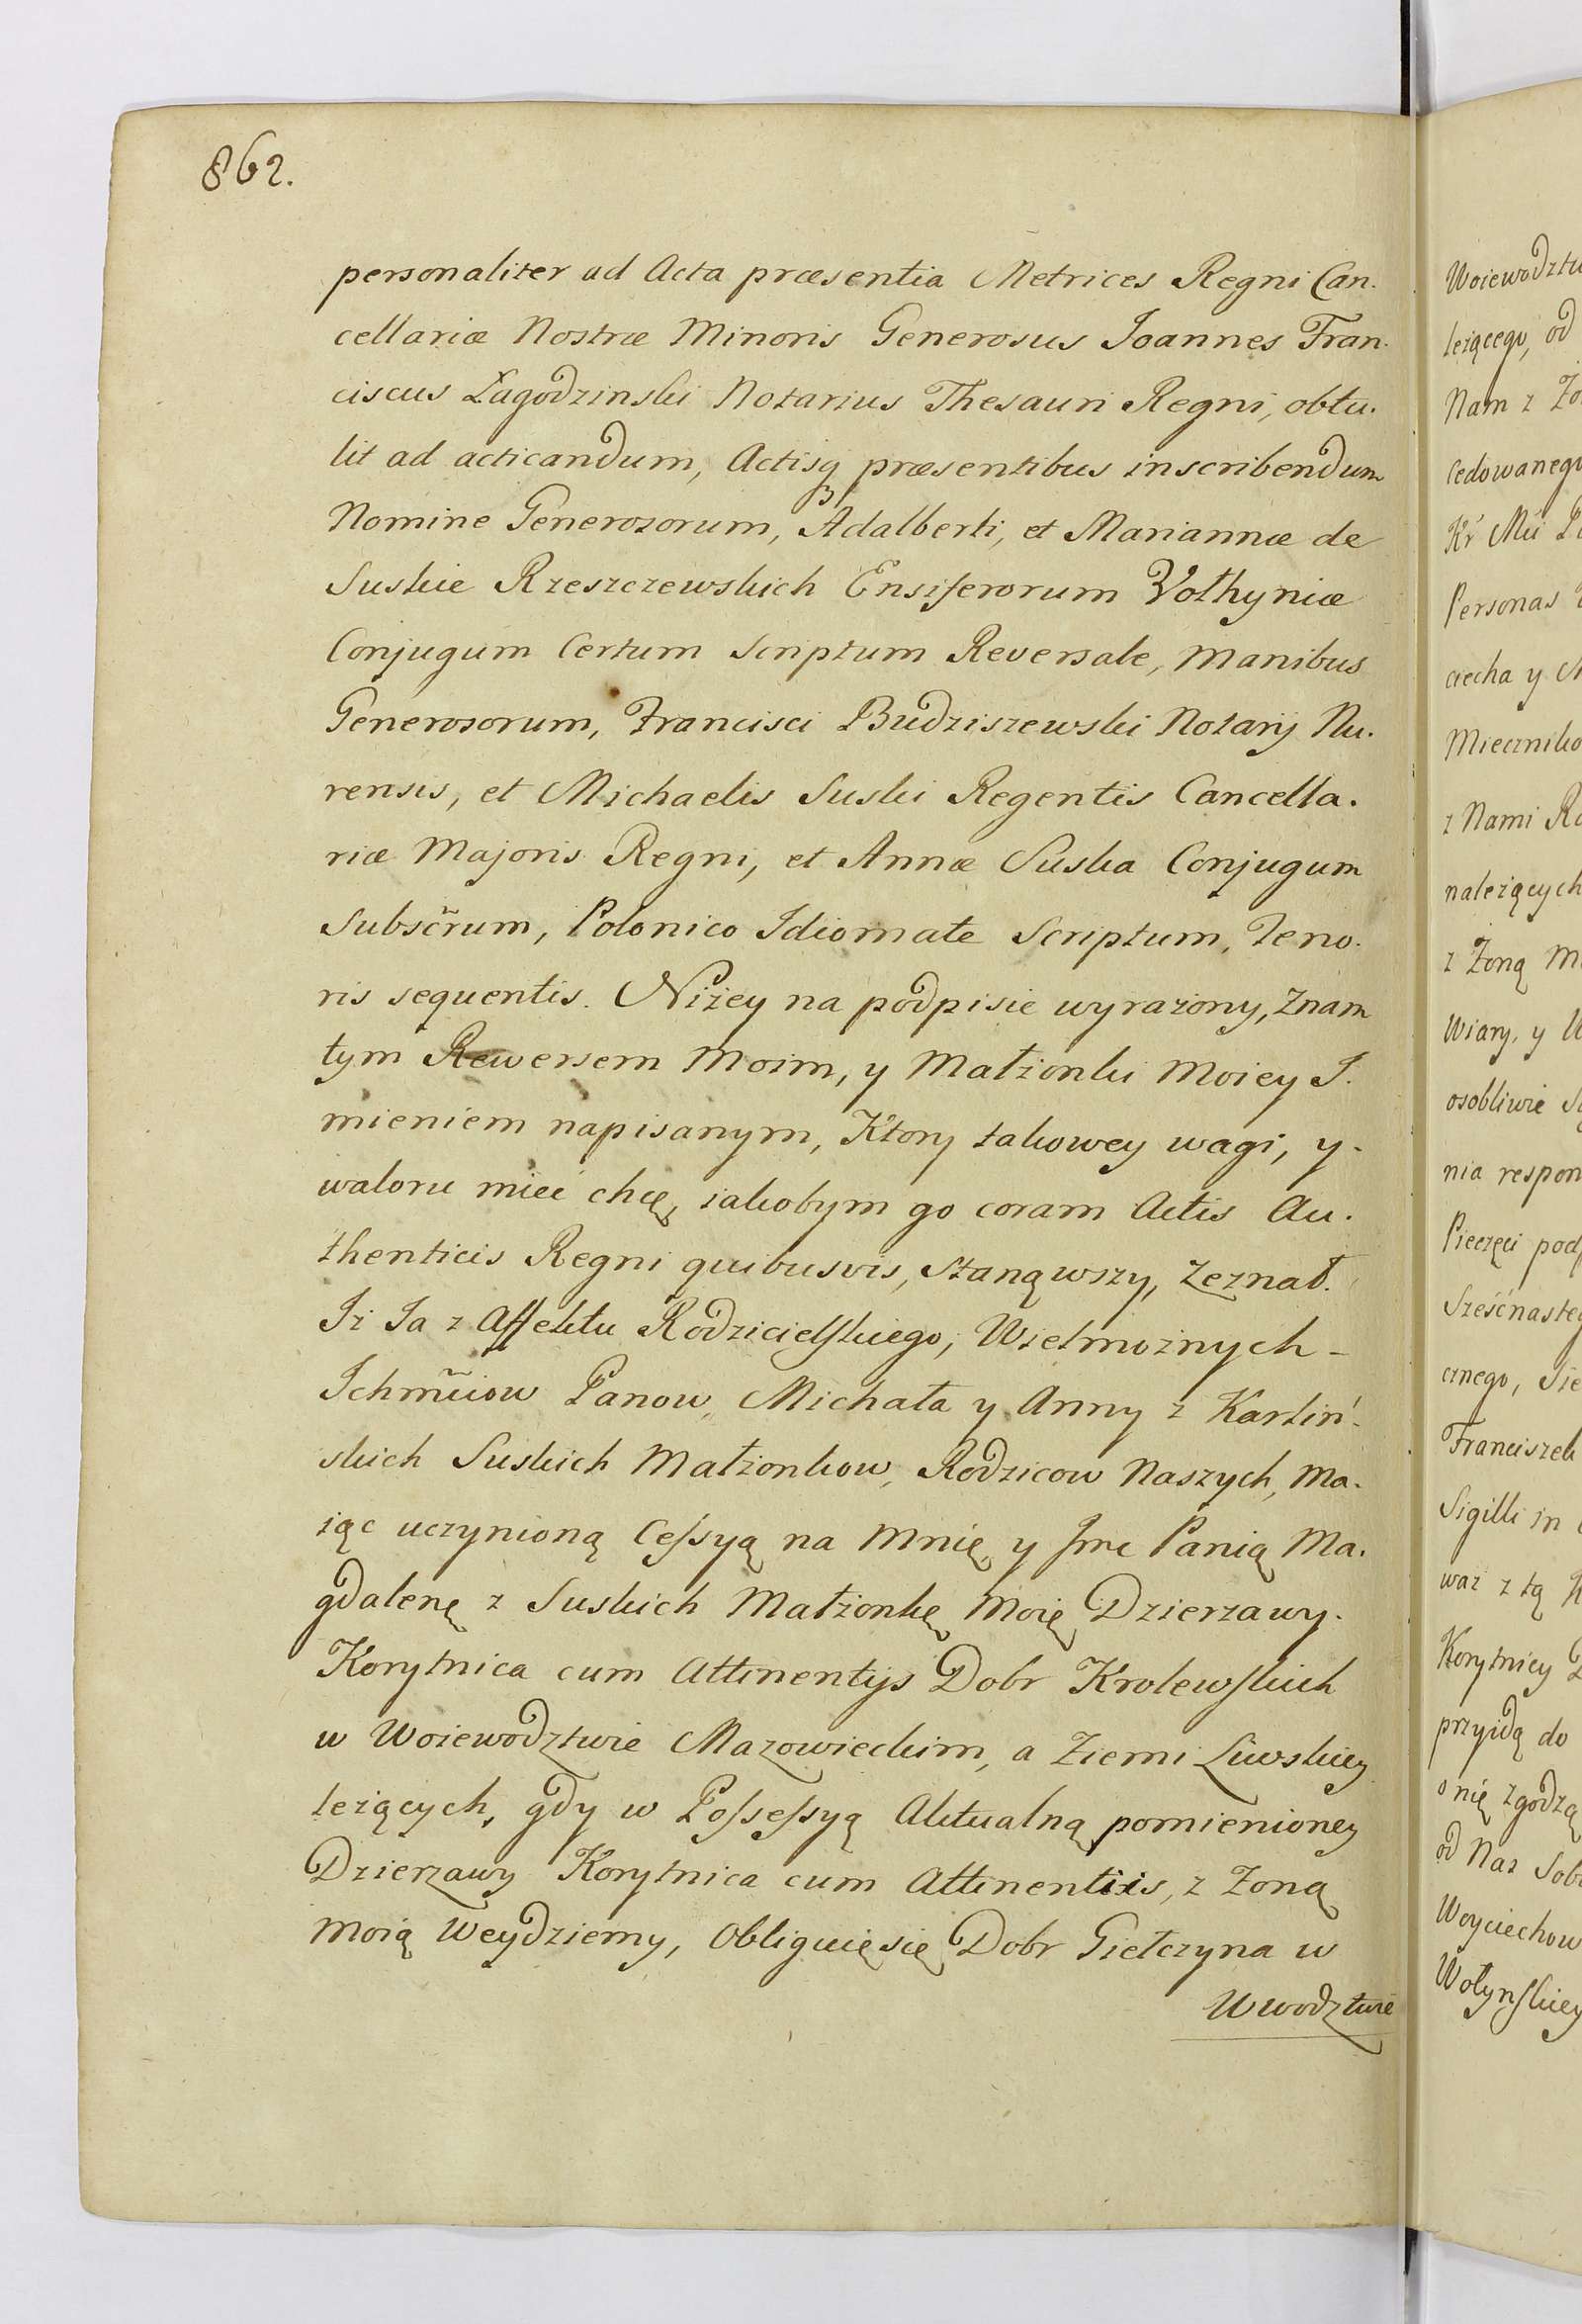 862.
personaliter ad Acta præsentia Metrices Regni Can.
cellariæ Nostræ Minoris Generosus Joannes Fran.
ciscus Łagodzinski Notarius Thesauri Regni, obtu.
lit ad acticandum, Actisq præsentibus inscribendum
Nomine Generosorum, Adalberti, et Mariannæ de
Suskie Rzeszczewskich Ensiferorum Vołhyniæ
Conjugum Certum Scriptum Reversale, Manibus
Generosorum, Francisci Budziszewski Notarij Nu.
rensis, et Michaelis Suski Regentis Cancella.
riæ Majoris Regni, et Annæ Suska Conjugum
Subscr̃um, Polonico Idiomate Scriptum, Teno.
ris sequentis. Niżey na podpisie wyrażony, Znam
tym Rewersem Moim, y Małżonki Moiey J.
mieniem napisanym, Ktory takowey wagi, y.
waloru mieć chcę, iakobym go coram Actis Au.
thenticis Regni quibusvis, Stanąwszy, Zeznał.
Iż Ja z Affektu Rodzicielskiego, Wielmożnych -
Ichmc̃iow Panow, Michała y Anny z Karliń.
skich Suskich Małżonkow, Rodzicow Naszych, Ma.
iąc uczynioną Cessyą na Mnię, y Jmc Panią Ma.
gdalenę z Suskich Małżonkę Moię Dzierzawy.
Korytnica cum Attinentijs Dobr Krolewskich
w Woiewodztwie Mazowieckim, a Ziemi Liwskiey
leżących, gdy w Possessyą Aktualną pomienioney
Dzierzawy Korytnica cum Attinentiis, z Zoną
Moią Weydziemy, Obliguię się Dobr Giełczyna w
Wwodztwie
Woiewodztw
leżącego, od
Nam z Żo
cedowanego
Kr Mći
Personas
ciecha y
Miecznik
z Nami
należących
z Zoną
Wiary, y
osobliwie
nia respon
Pieczęci pod
Sześćnaste
cznego, Sie
Franciszek
Sigilli in
waz z tą
Korytnicy
przyidą do
o nię zgodzą
od Nas Sob
Woyciechow
Wołynskiey